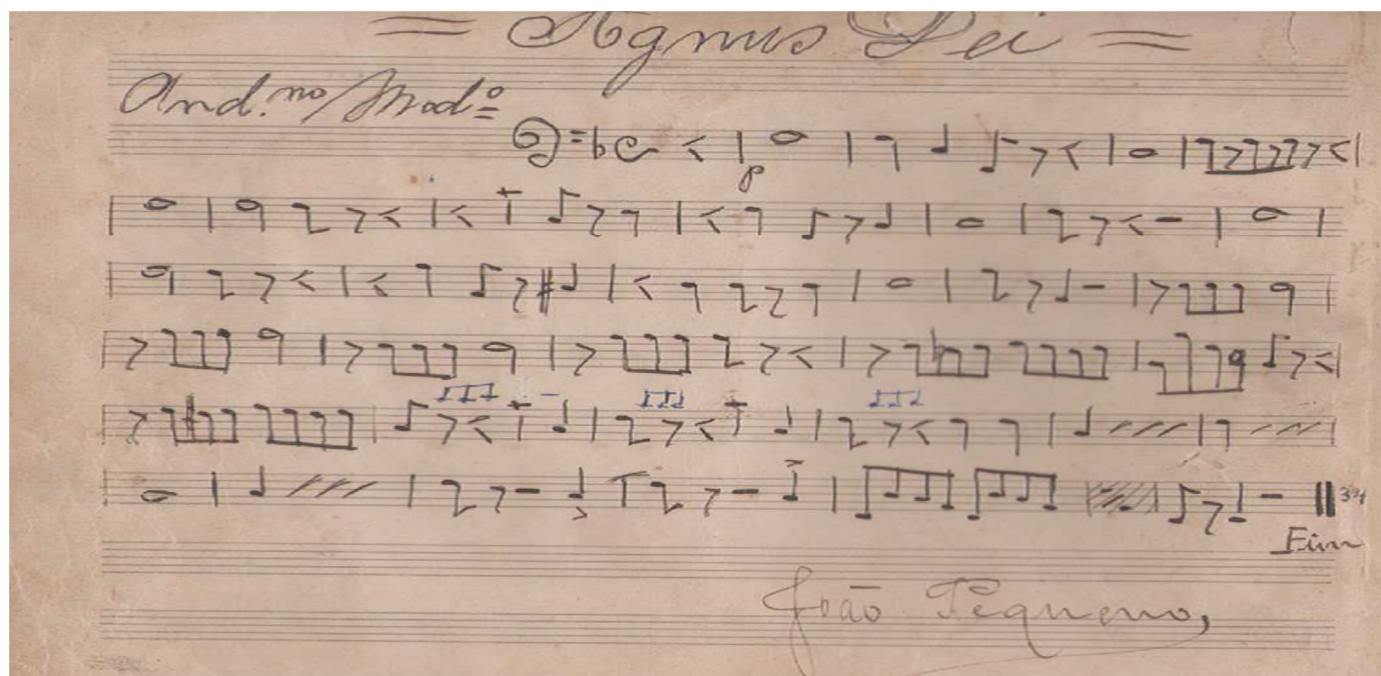 = Agnus Dei =
And.no Mod.o
p
34
Fim
João Pequeno,